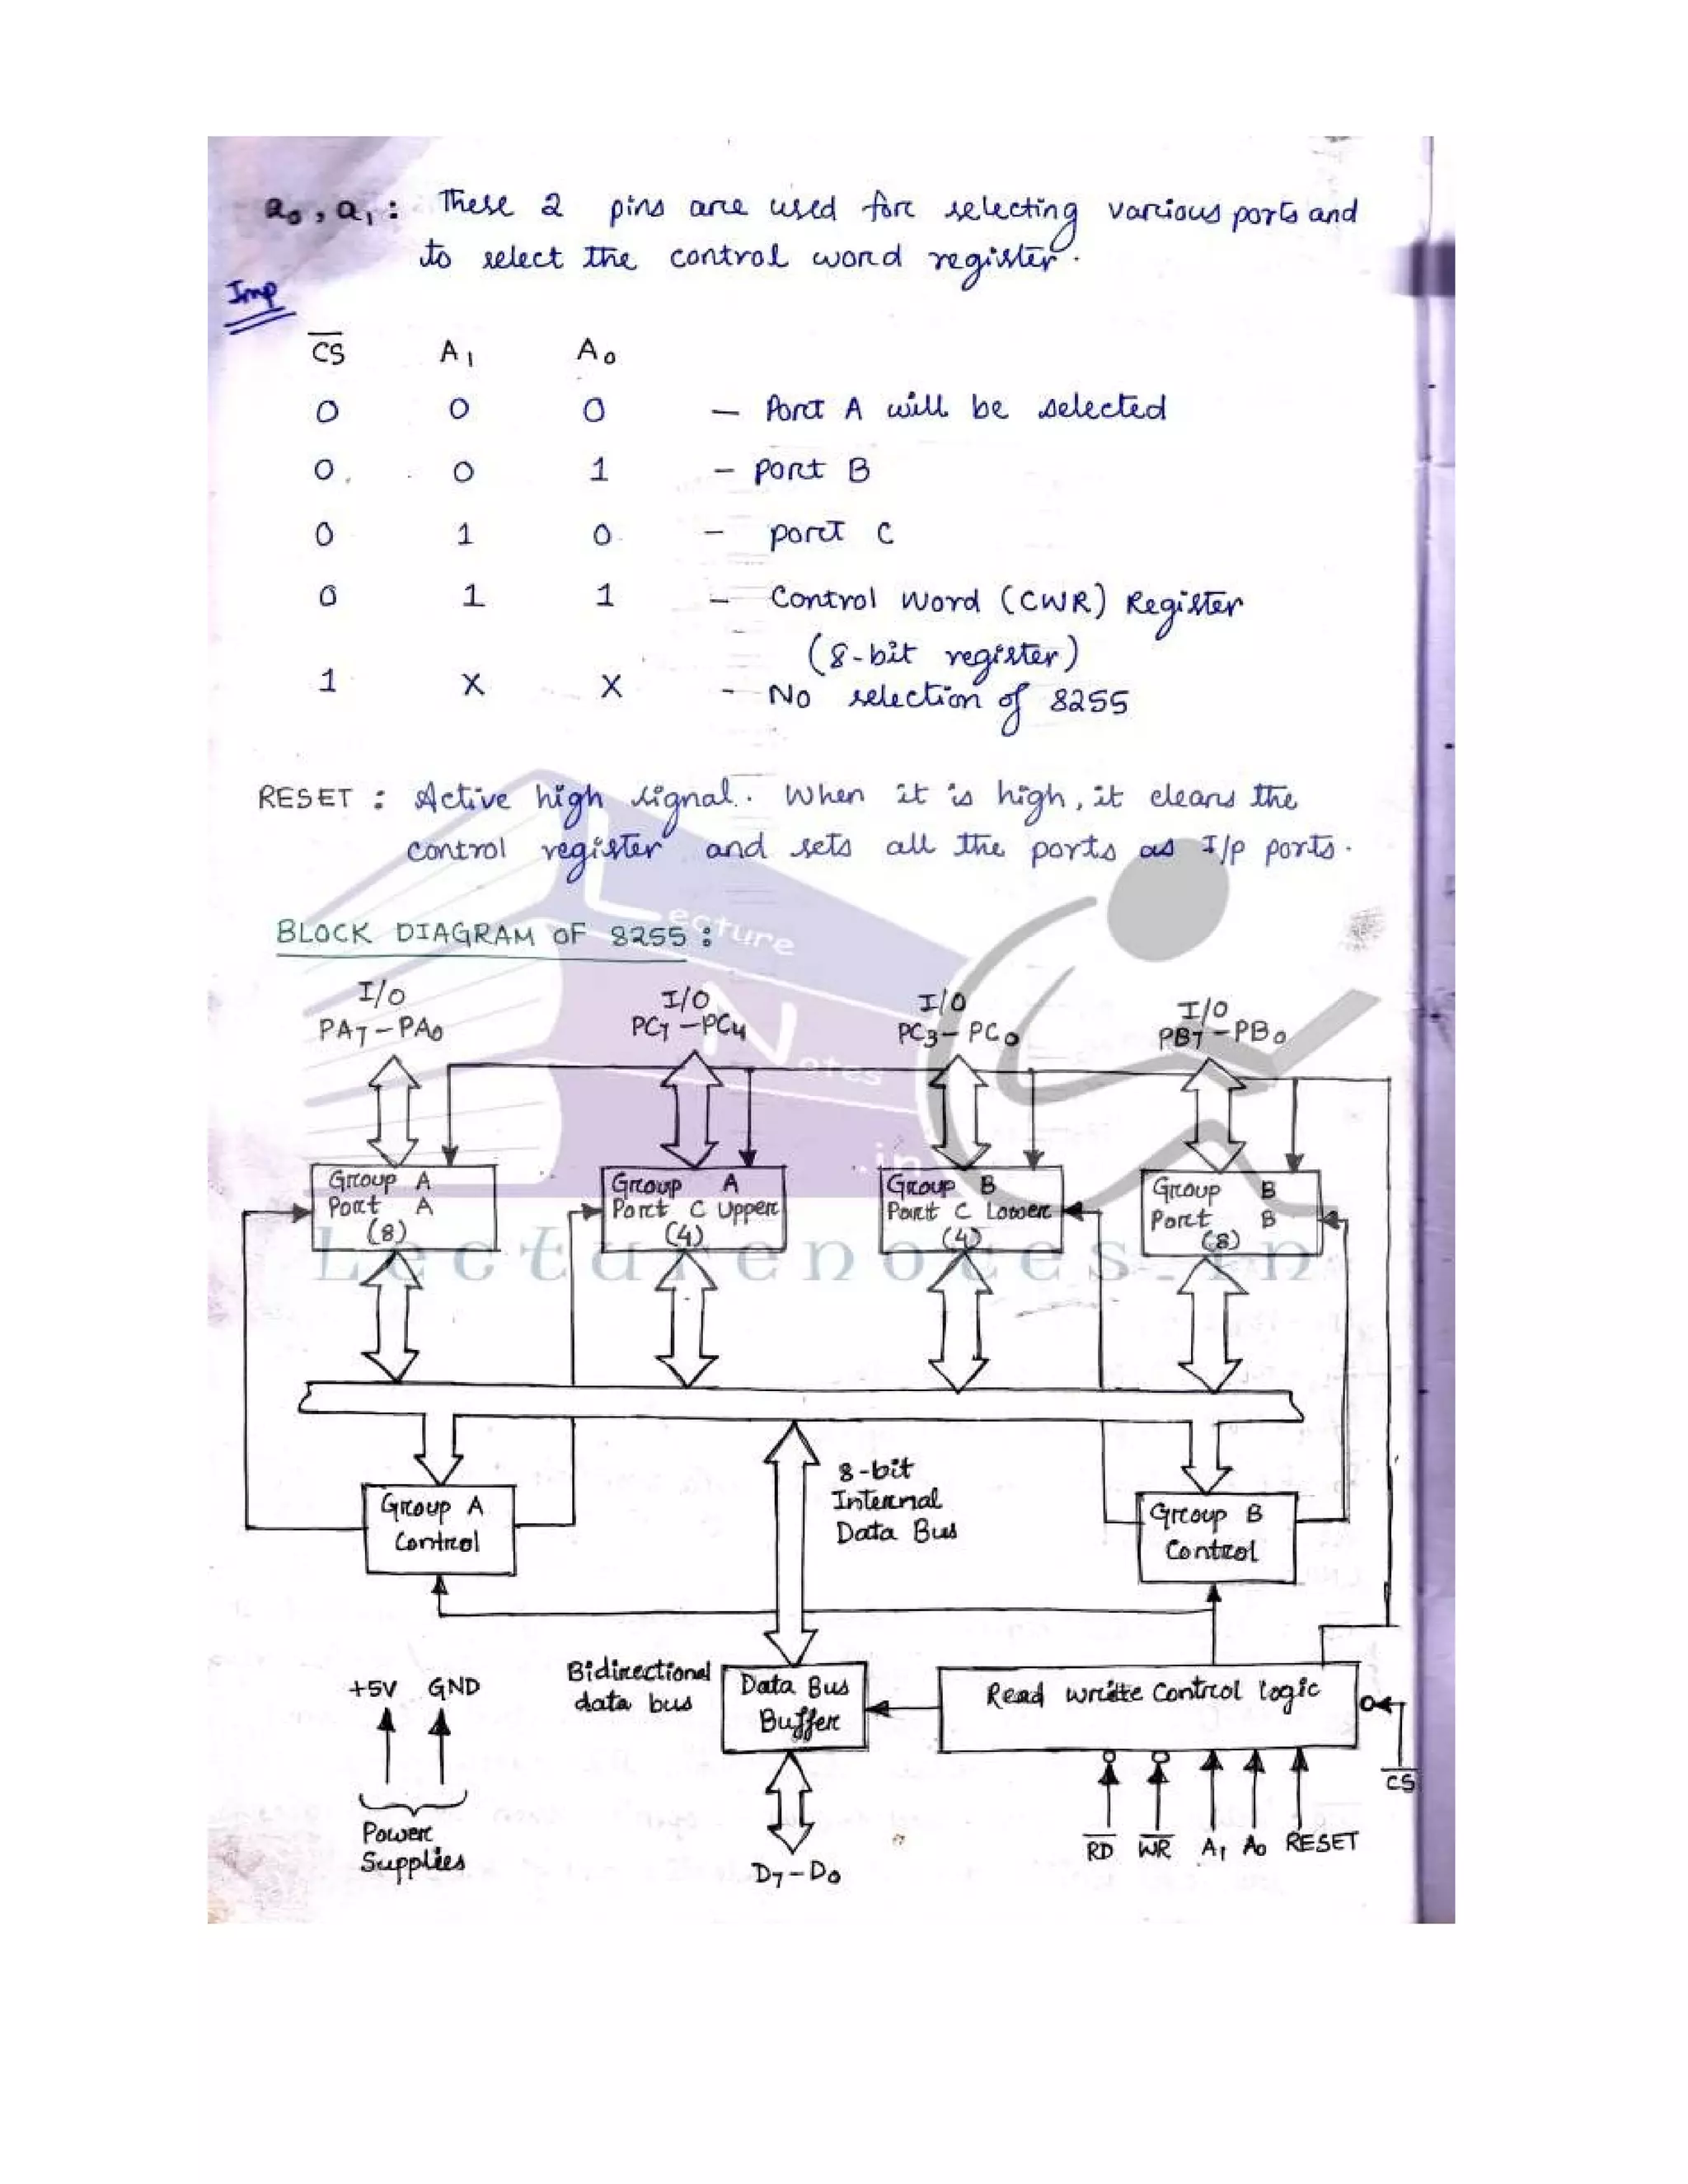 a₀, a₁ : These 2 pins are used for selecting various ports and
to select the control word register.
Imp
C̅S̅ A₁ A₀
0 0 0 — Port A will be selected
0 0 1 – port B
0 1 0 – port C
0 1 1 – Control Word (CWR) Register
(8-bit register)
1 X X - No selection of 8255
RESET : Active high signal. When it is high, it clears the
control register and sets all the ports as I/p ports.
BLOCK DIAGRAM OF 8255 :
I/O I/O I/O I/O
PA₇–PA₀ PC₇–PC₄ PC₃–PC₀ PB₇–PB₀
Group A Group A Group B Group B
Port A Port C Upper Port C Lower Port B
(8) (4) (4) (8)
8-bit
Internal
Data Bus
Group A
Control
Group B
Control
Bidirectional
data bus
Data Bus
Buffer
Read write Control logic
C̅S̅
+5V GND
Power
Supplies
D₇–D₀
R̅D̅ W̅R̅ A₁ A₀ RESET
Lecture
Notes
.in
Lecturenotes.in